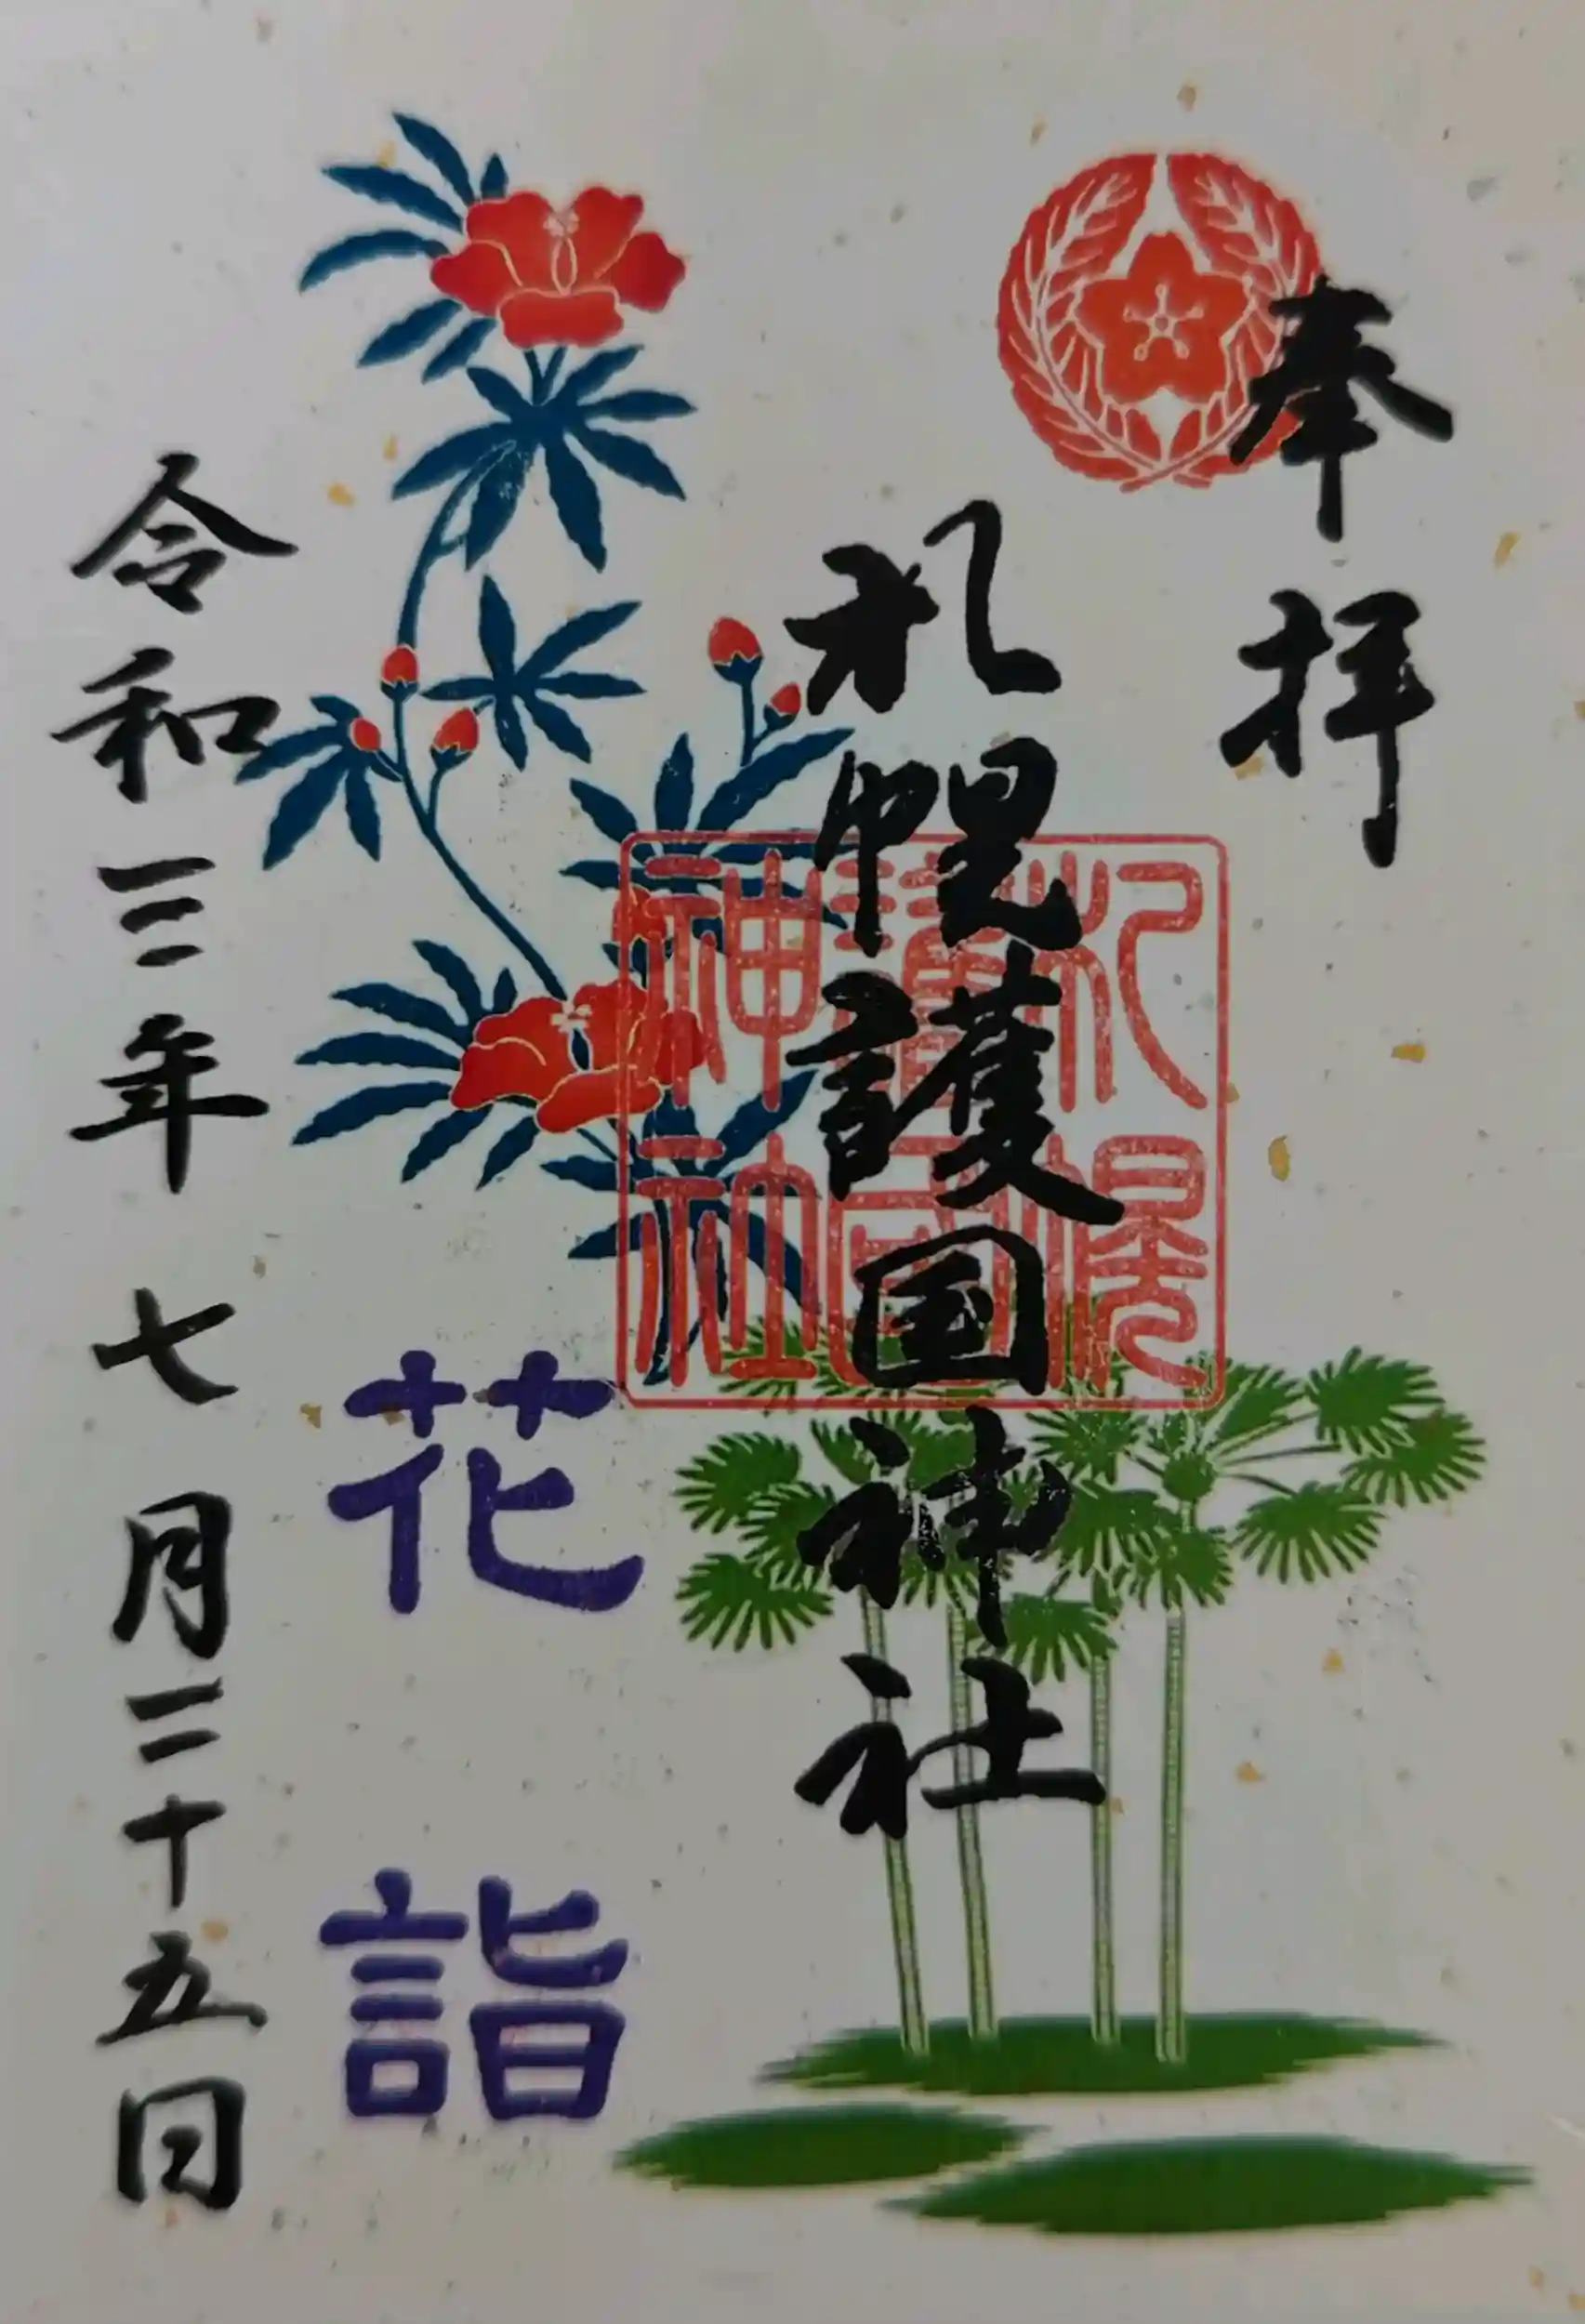 奉拝
札幌護国神社
札幌
護國
神社
花詣
令和三年七月二十五日